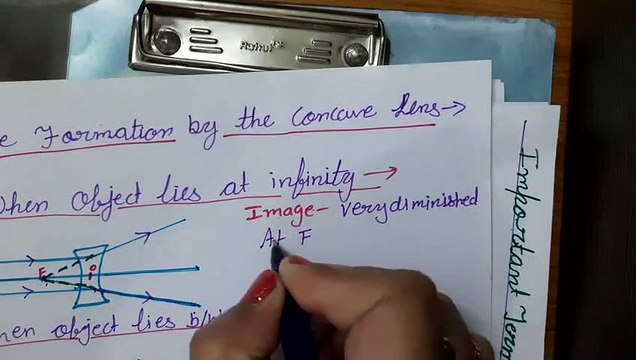 e Formation by the Concave Lens→
When object lies at infinity →
Image- Very diminished
At F
F
O
hen object lies b/w
Important Term